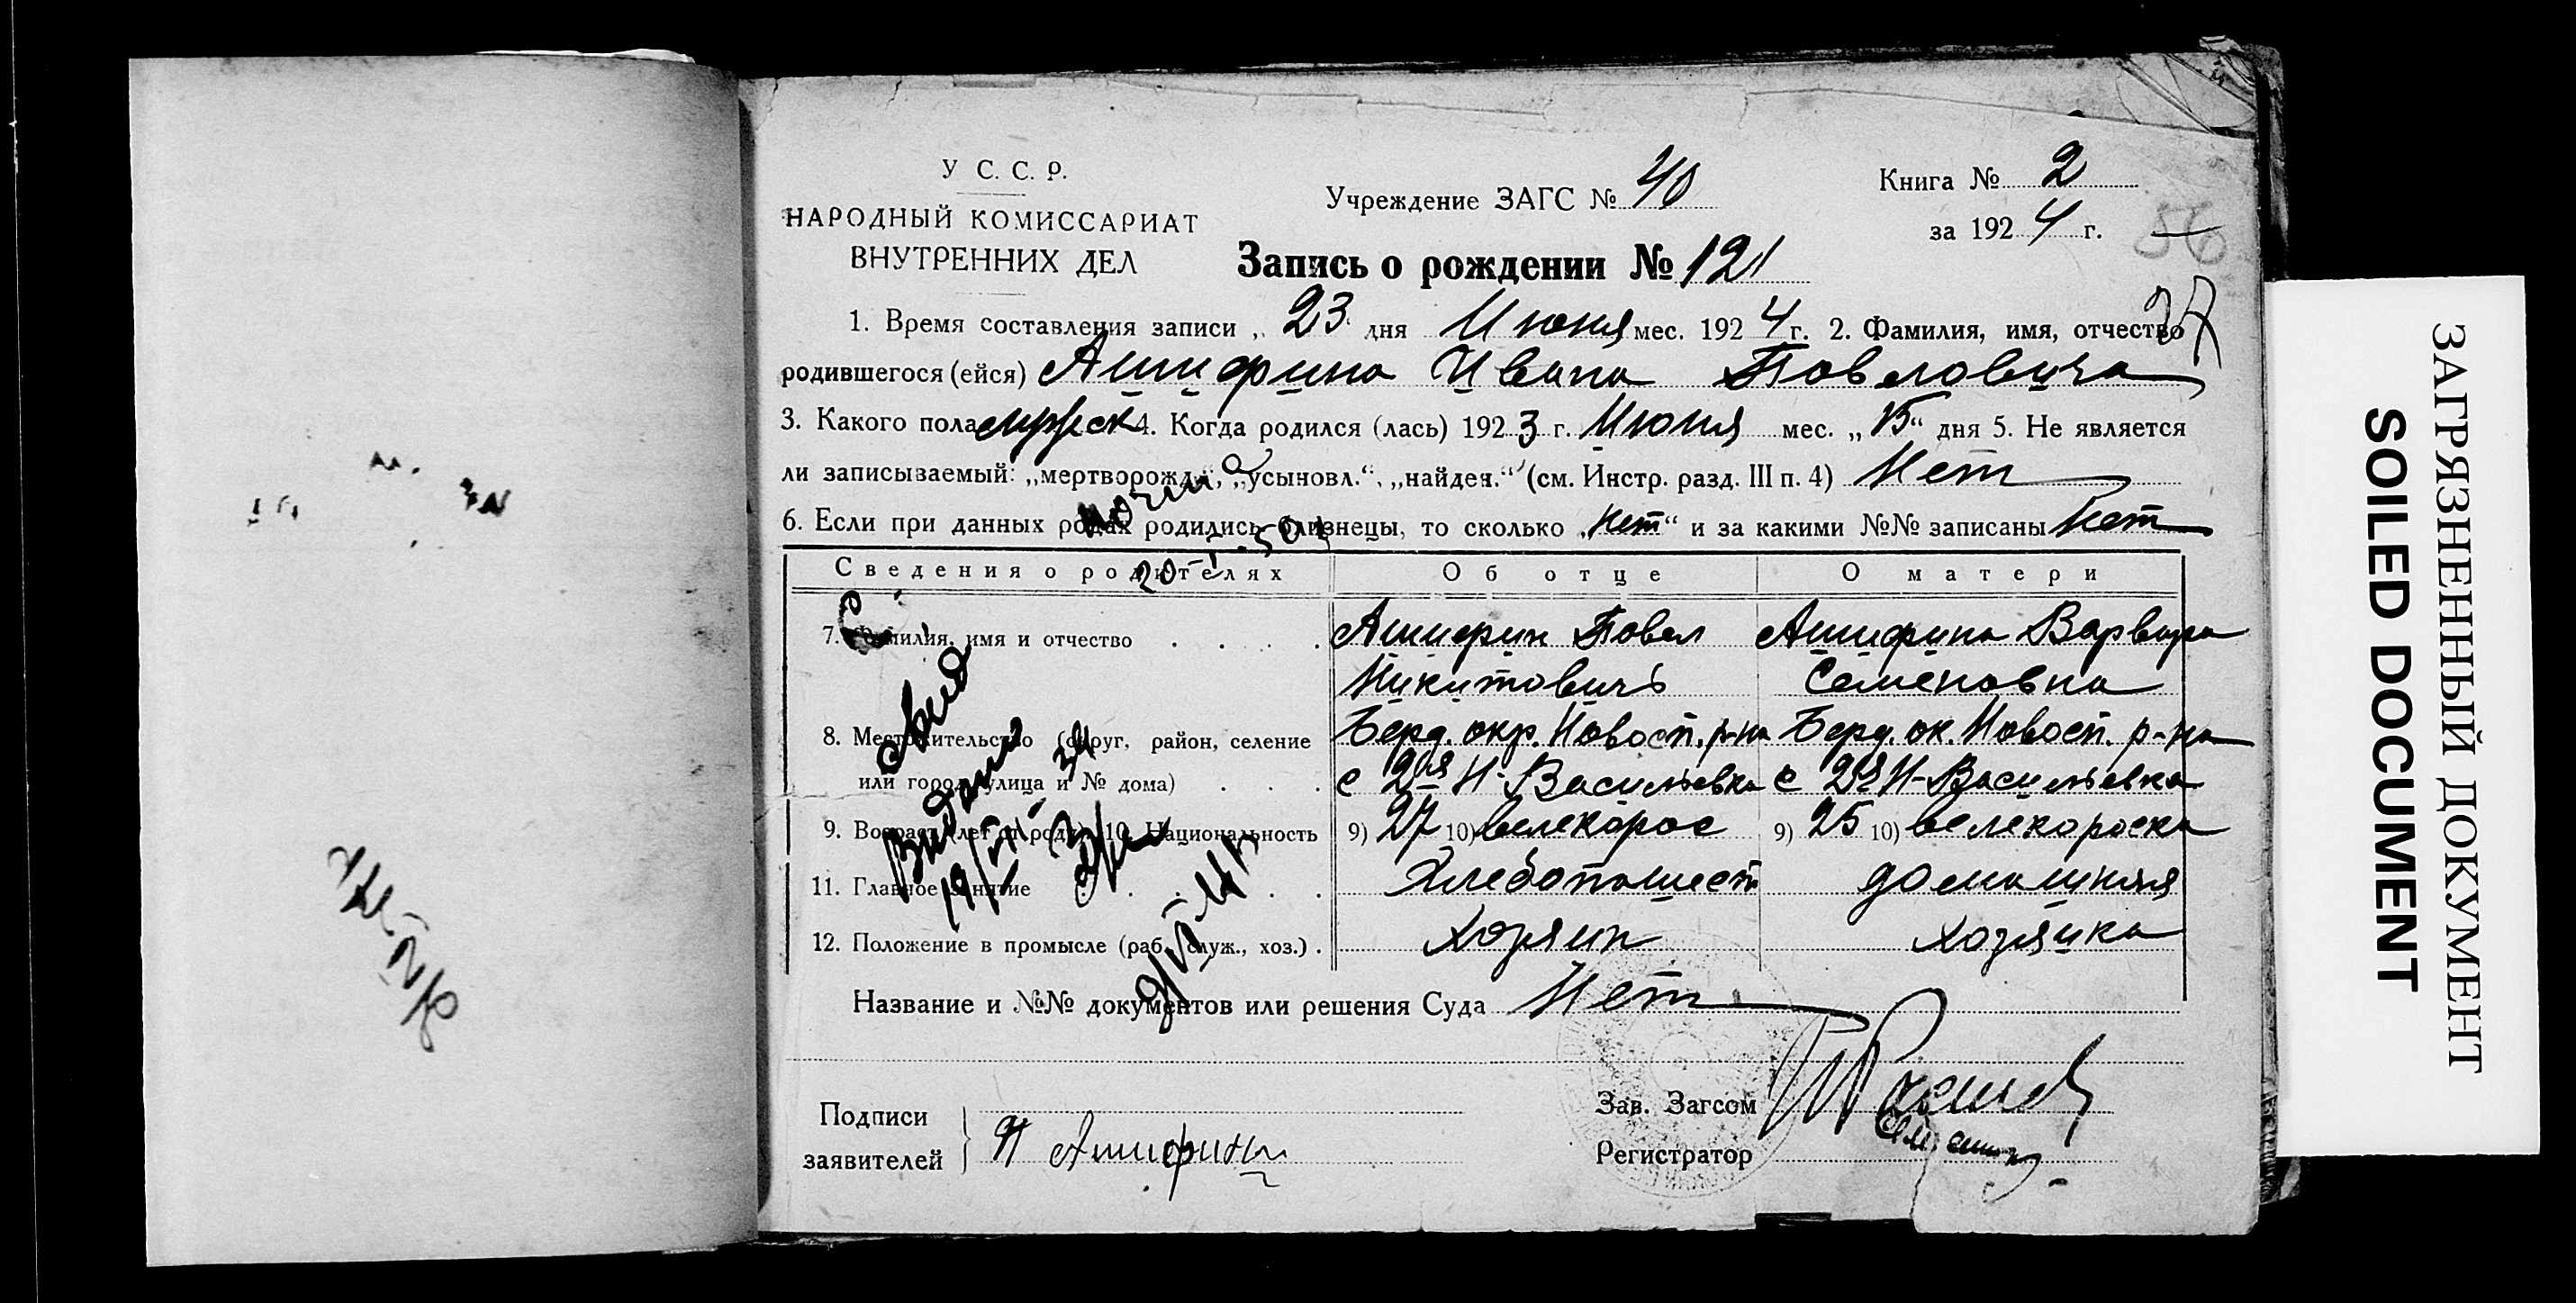 У С. С. Р.
НАРОДНЫЙ КОМИССАРИАТ
ВНУТРЕННИХ ДЕЛ
Учреждение ЗАГС № 40
Книга № 2
за 1924 г.
56
37
Запись о рождении № 121
1. Время составления записи „ 23 дня Июня мес. 1924 г. 2. Фамилия, имя, отчество
родившегося (ейся) Ашифина Ивана Повловича
3. Какого пола мужск 4. Когда родился (лась) 1923 г. Июня мес. „15“ дня 5. Не является
ли записываемый: „мертворожд.“, „усыновл.“, „найден.“ (см. Инстр. разд. III п. 4) Нет
6. Если при данных родах родились близнецы, то сколько „нет“ и за какими №№ записаны Нет
Сведения о родителях Об отце О матери
7. Фамилия, имя и отчество Ашифин Повел Ашифина Варвара
Никитовичъ Семеновна
8. Местожительство (округ, район, селение Берд. окр. Новосп. р-на Берд. ок. Новосп. р-на
или город, улица и № дома) с 2я Н-Васильевка с 2я Н-Васильевка
9. Возраст (лет от роду) 10. Национальность 9) 27 10) велекорос 9) 25 10) велекороска
11. Главное занятие Хлебопашест домашняя
12. Положение в промысле (раб., служ., хоз.) Хозяин хозяйка
Название и №№ документов или решения Суда Нет
Подписи
заявителей
П Ашифин
Зав. Загсом
Регистратор
ЗАГРЯЗНЕННЫЙ ДОКУМЕНТ
SOILED DOCUMENT